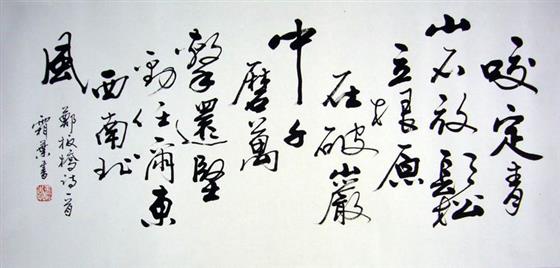 咬定青
山不放鬆
立根原
在破巖
中千
磨萬
擊還堅
勁任爾東
西南北
風
鄭板橋詩一首
霜葉書